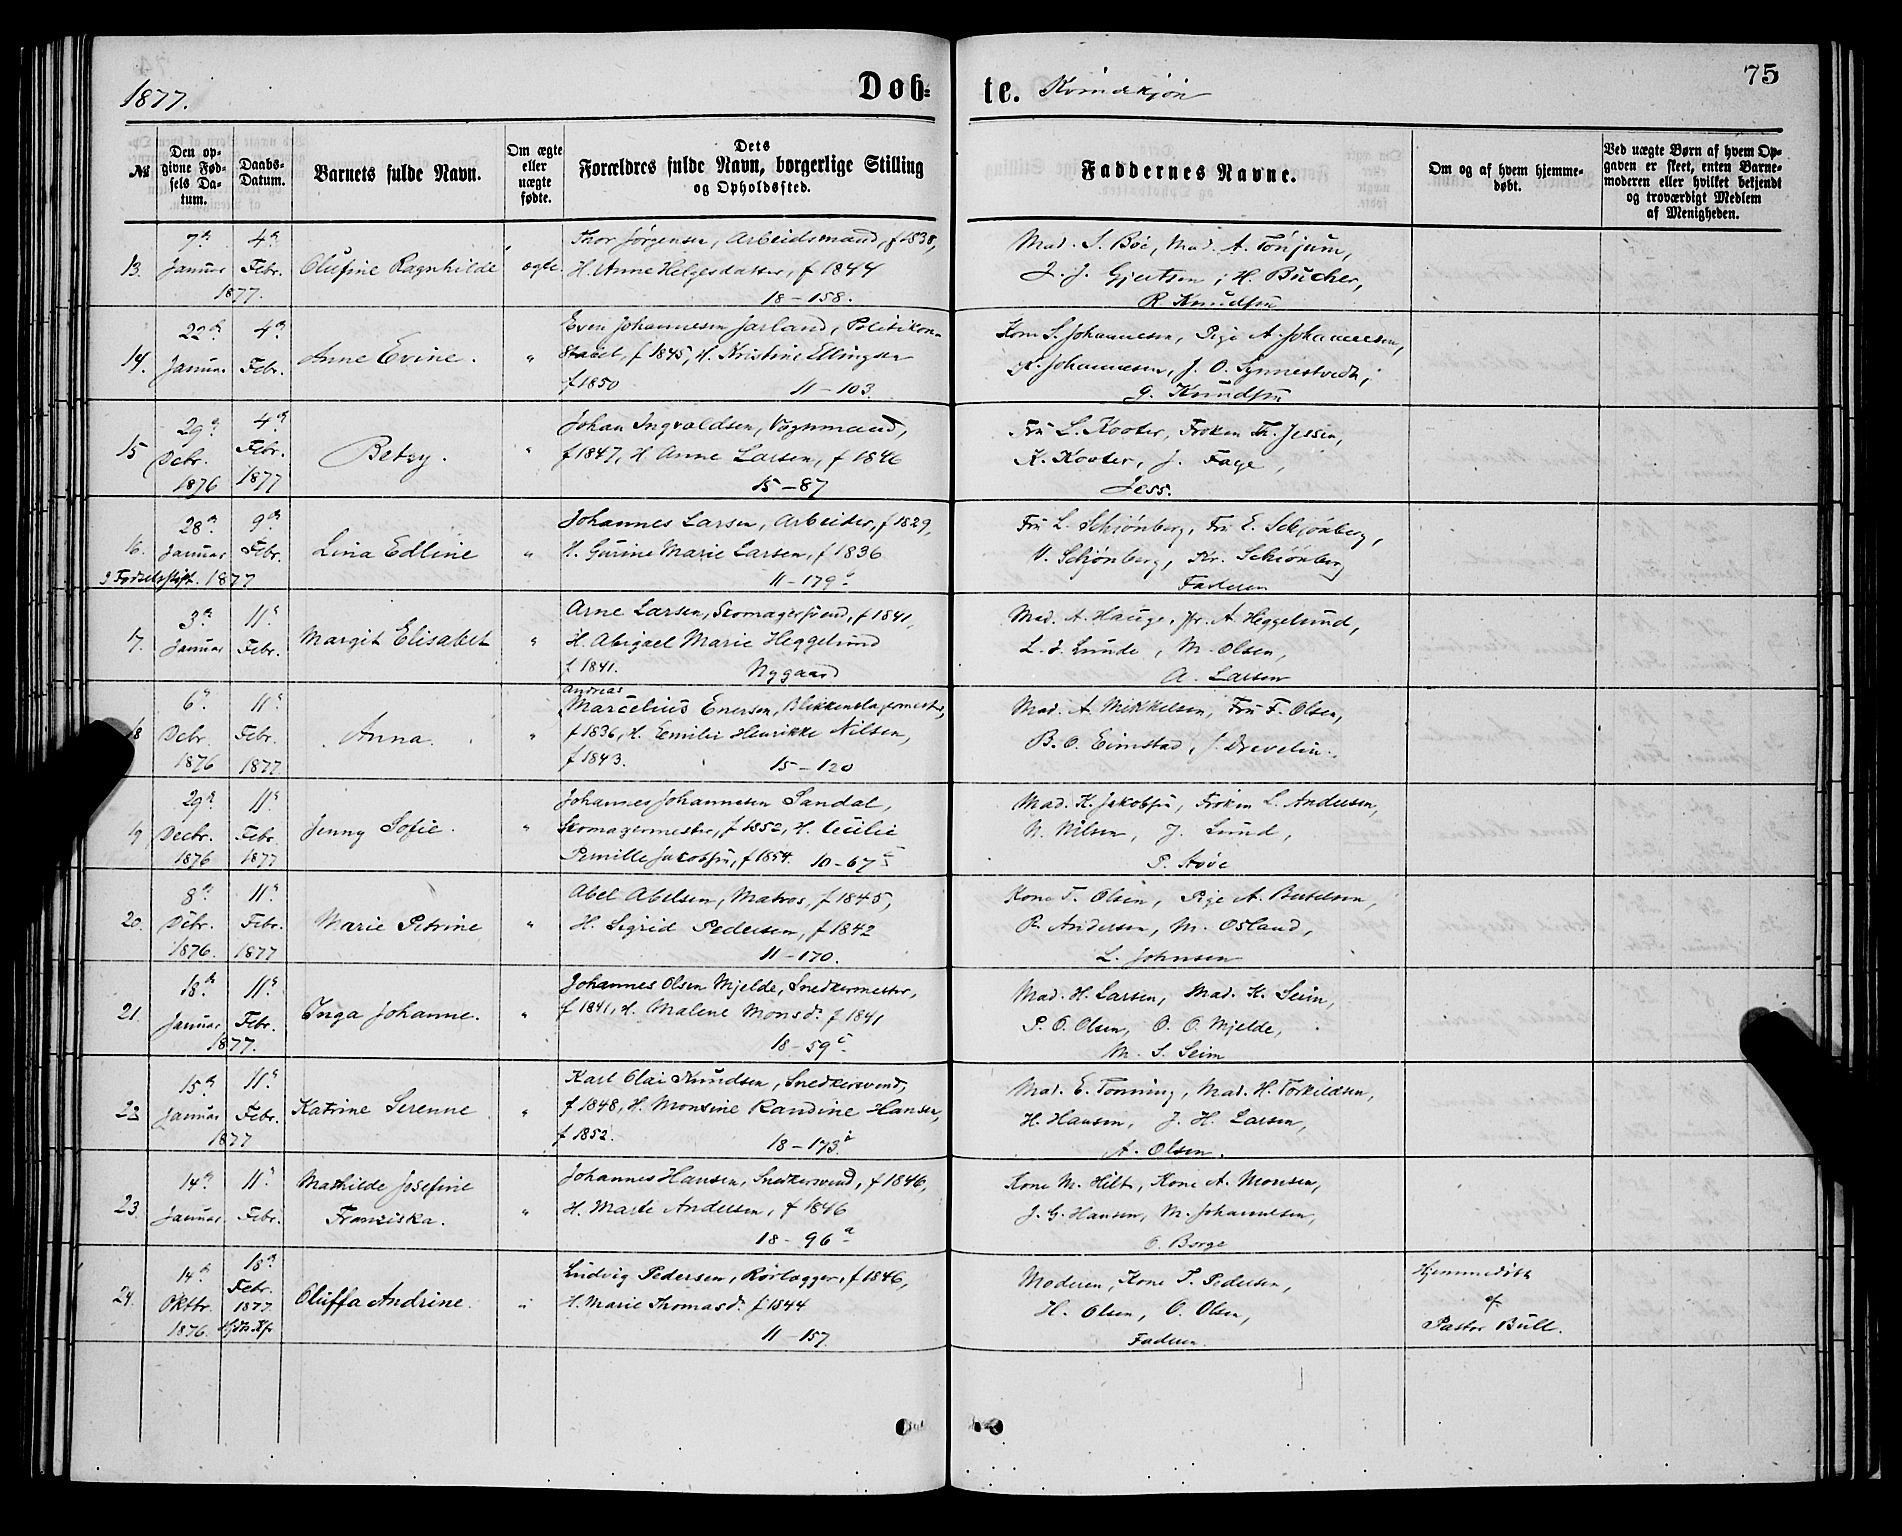 1877.
Døb-
te.
Kvindekjøn
75
№
Den op-
givne Fød-
sels Da-
tum.
Daabs-
Datum.
Barnets fulde Navn.
Om ægte
eller
uægte
fødte.
Dets
Forældres fulde Navn, borgerlige Stilling
og Opholdssted.
Faddernes Navne.
Om og af hvem hjemme-
døbt.
Ved uægte Børn af hvem Op-
gaven er skeet, enten Barne-
moderen eller hvilket bekjendt
og troværdigt Medlem
af Menigheden.
13.
7de Januar
4de Febr.
1877.
Olufine Ragnhilde
ægte.
Thor Jørgensen, Arbeidsmand, f 1838,
H. Anne Helgesdatter, f 1844
18-158.
Mad. S. Böe, Mad. A. Tönjum,
J. J. Gjertsen, H. Bücher,
R. Knudsen
14.
22de Januar
4de Febr.
Anne Evine.
"
Even Johannesen Jarland, Politikon-
stabel, f 1845, H. Kristine Ellingsen
f 1850
11-103.
Kone S. Johannesen, Pige A. Johannesen,
K. Johannesen, J. O. Synnestvedt,
G. Knudsen
15
29de Debr. 1876
4de Febr. 1877
Betsy.
"
Johan Ingvaldsen, Vognmand,
f 1847, H. Anne Larsen, f 1846
15-87
Fru L. Kooter, Frøken Th. Jessen,
K. Kooter, J. Fage,
Jess.
16.
28de Januar
9de Febr.
1877
Lina Edline
"
Johannes Larsen, Arbeider, f 1829,
H. Gurine Marie Larsen, f 1836
11-179b
Fru L. Schjönberg, Fru E. Schjönberg,
V. Schjönberg, Kr. Schjönberg
Faderen
I Fødselsstift.
17.
3de Januar
11te Febr.
Margit Elisabet
"
Arne Larsen, Skomagersvend, f 1841,
H. Abigael Marie Heggelund
f 1841.
Nygaard
Mad. A. Hauge, Jfr. A. Heggelund,
L. J. Lunde, M. Olsen,
A. Larsen
18
6te Debr. 1876
11te Febr. 1877
Anna.
"
Andreas
Marcelius Enersen, Blikkenslagermester,
f 1836, H. Emilie Henrikke Nilsen,
f 1843.
15-120
Mad. A. Mikkelsen, Fru F. Olsen,
B. O. Eimstad, J. Drevelin.
19
29de Decbr. 1876
11te Febr. 1877
Jenny Sofie.
"
Johannes Johannesen Sandal,
Skomagermester, f 1852, H. Cecilie
Pernille Jakobsen, f 1854. 10-67c
Mad. K. Jakobsen, Frøken L. Andersen,
N. Nilsen, J. Lund,
P. Støe
20.
8de Debr. 1876.
11te Febr. 1877
Marie Petrine
"
Abel Abelsen, Matros, f 1845,
H. Sigrid Pedersen, f 1842
11-170.
Kone T. Olsen, Pige A. Bertelsen,
P. Andersen, M. Osland,
L. Johnsen
21.
18de Januar
11te Febr.
1877.
Inga Johanne.
"
Johannes Olsen Mjelde, Snedkermester,
f 1841, H. Malene Monsd. f 1841
18-59c
Mad. H. Larsen, Mad. K. Seim,
P. O. Olsen, O. O. Mjelde,
M. S. Seim
22
15de Januar
11te Febr.
1877
Katrine Serenne
"
Karl Olai Knudsen, Snedkersvend,
f 1848, H. Monsine Randine Hansen,
f 1852.
18-173a
Mad. E. Tonning, Mad. H. Torkildsen,
H. Hansen, J. H. Larsen,
A. Olsen.
23.
14de Januar
11te Febr.
Mathilde Josefine
Franziska.
"
Johannes Hansen, Snedkersvend, f 1846,
H. Marte Andersen, f 1846
18-96a
Kone M. Hilt, Kone A. Monsen,
J. G. Hansen, M. Johannesen,
O. Borge
24.
14de Oktbr. 1876.
18de Febr. 1877.
Oluffa Andrine.
"
Ludvig Pedersen, Rørlægger, f 1846,
H. Marie Thomasd. f 1844
11-157.
Moderen, Kone T. Pedersen,
H. Olsen, O. Olsen,
Faderen.
Hjemmedøbt
af
Pastor Bull.